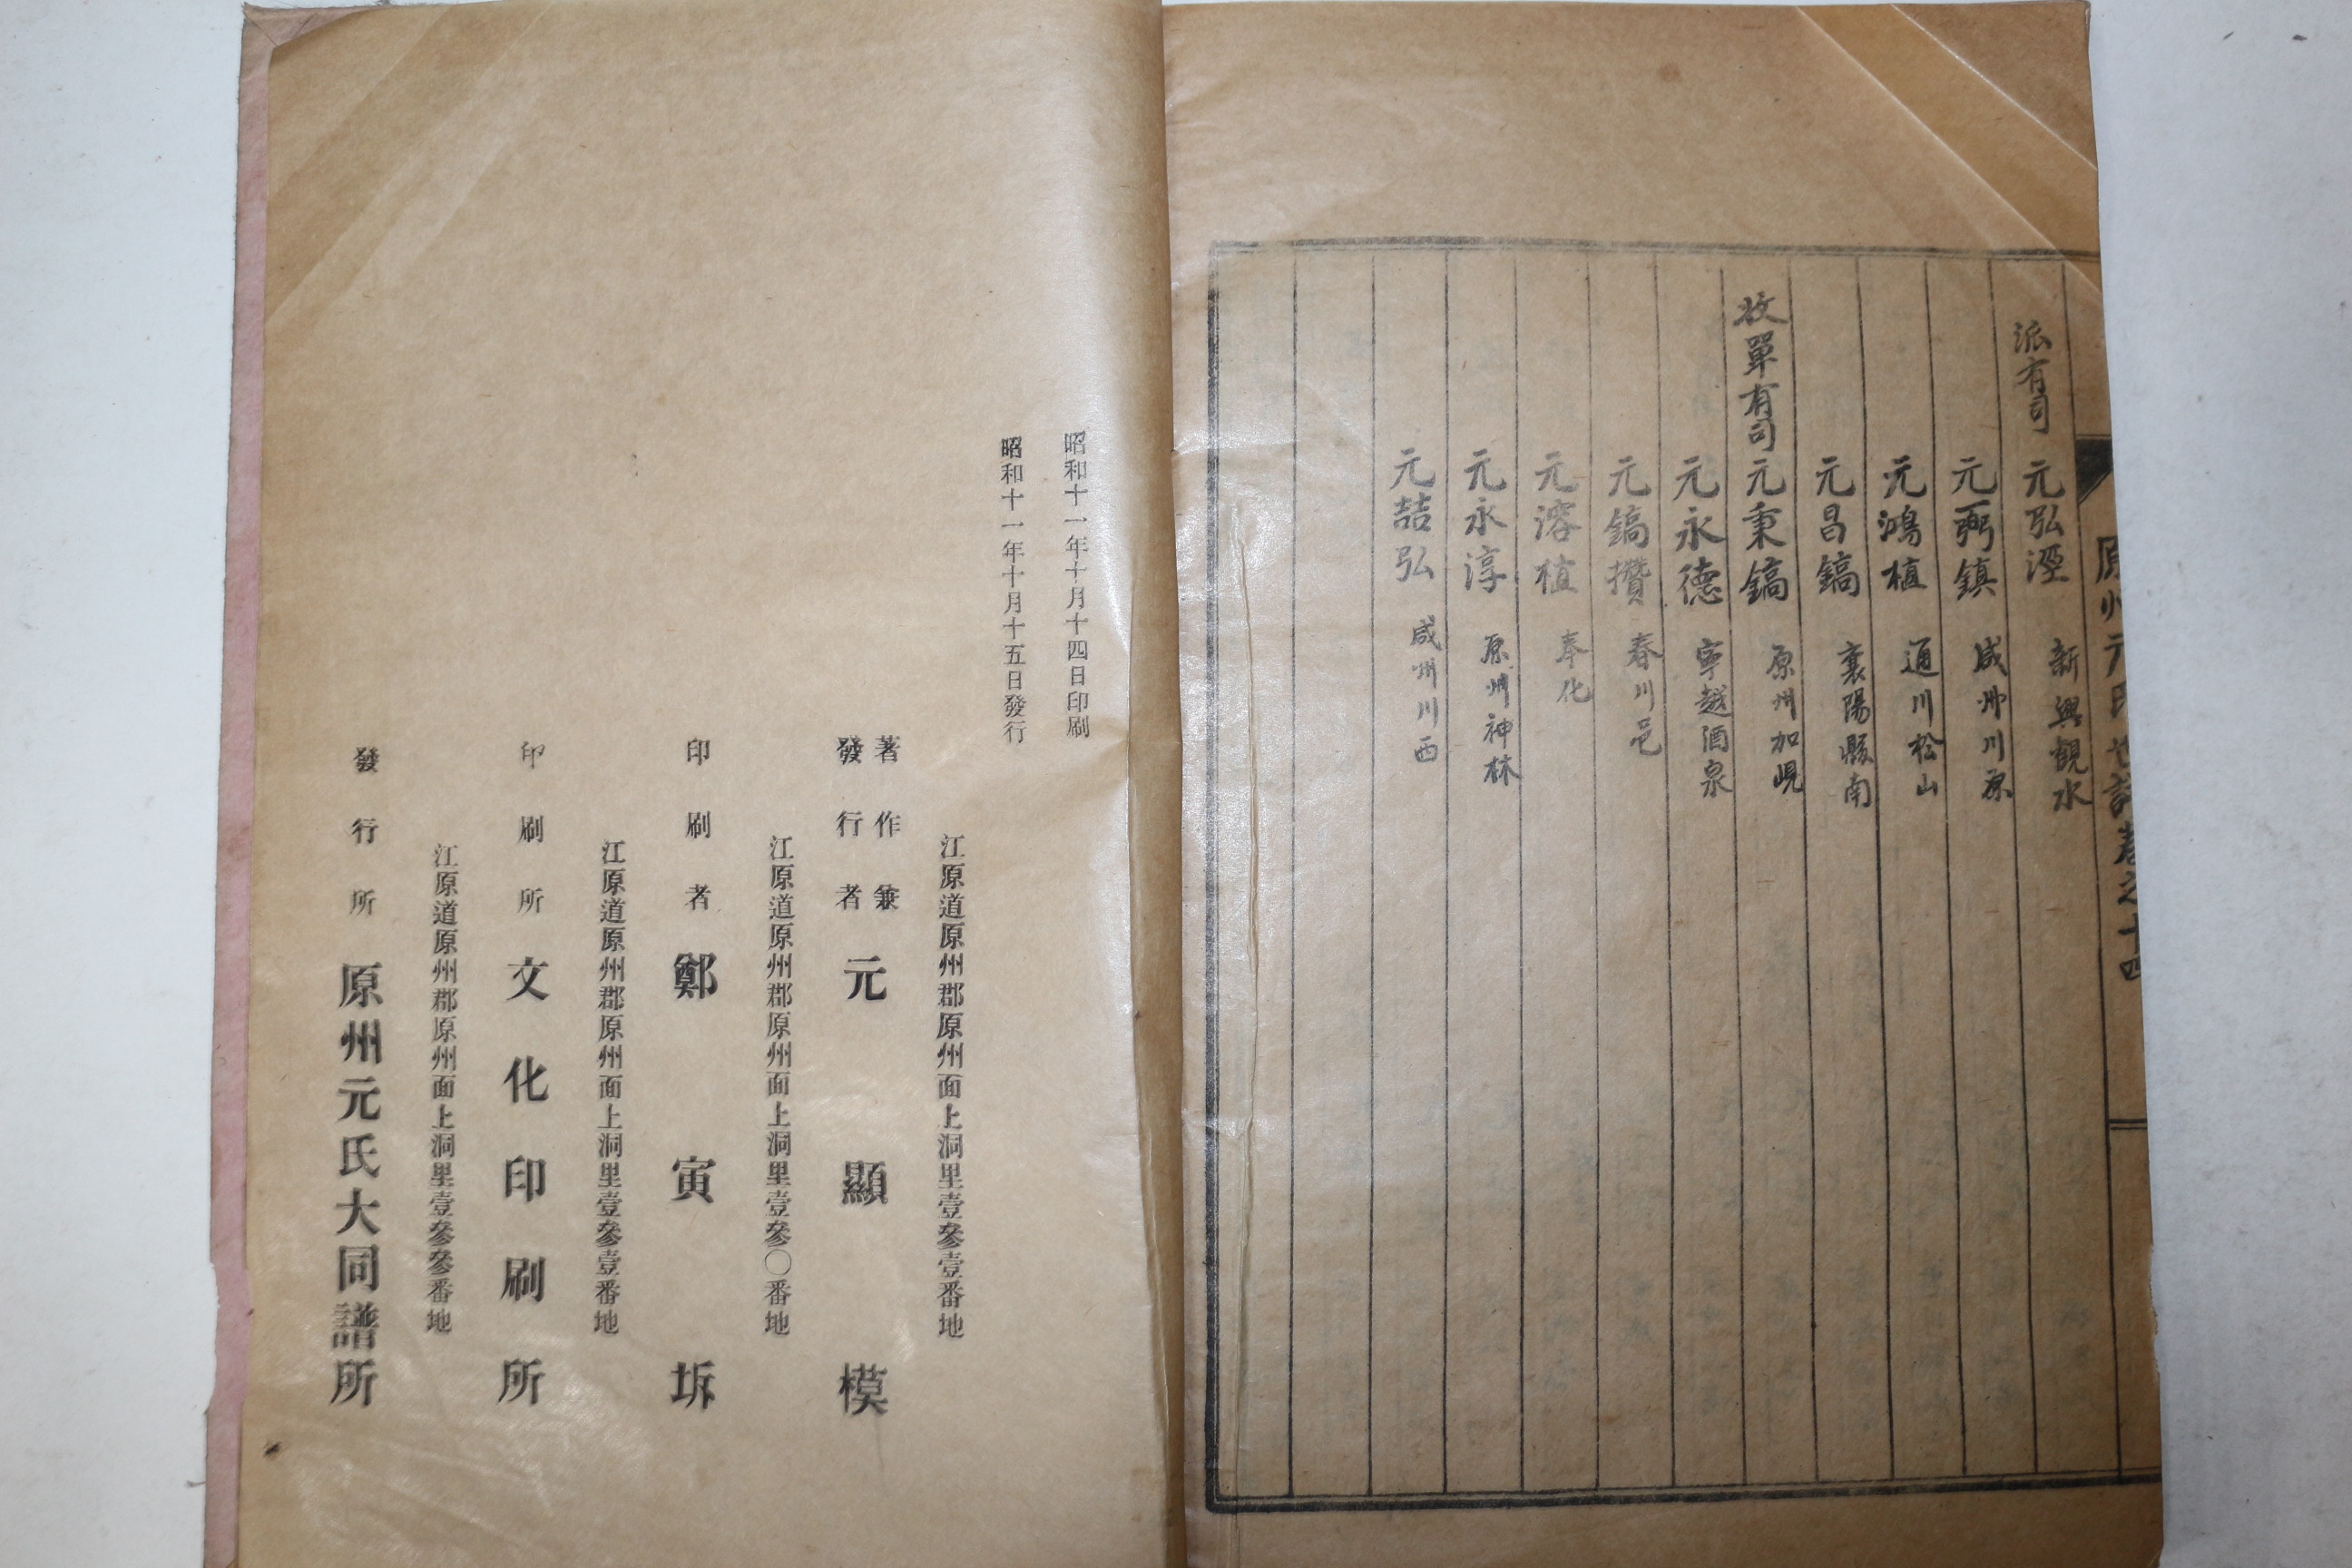 原州元氏世譜卷之十四
派有司 元弘澄 新興觀水
元弼鎮 咸州川原
元鴻植 通川松山
元昌鎬 襄陽縣南
收單有司 元秉鎬 原州加峴
元永德 寧越酒泉
元鎬攢 春川邑
元溶植 奉化
元永淳 原州神林
元喆弘 咸州川西
昭和十一年十月十四日印刷
昭和十一年十月十五日發行
江原道原州郡原州面上洞里壹參壹番地
著作兼
發行者 元顯模
江原道原州郡原州面上洞里壹參〇番地
印刷者 鄭寅坼
江原道原州郡原州面上洞里壹參壹番地
印刷所 文化印刷所
江原道原州郡原州面上洞里壹參參番地
發行所 原州元氏大同譜所